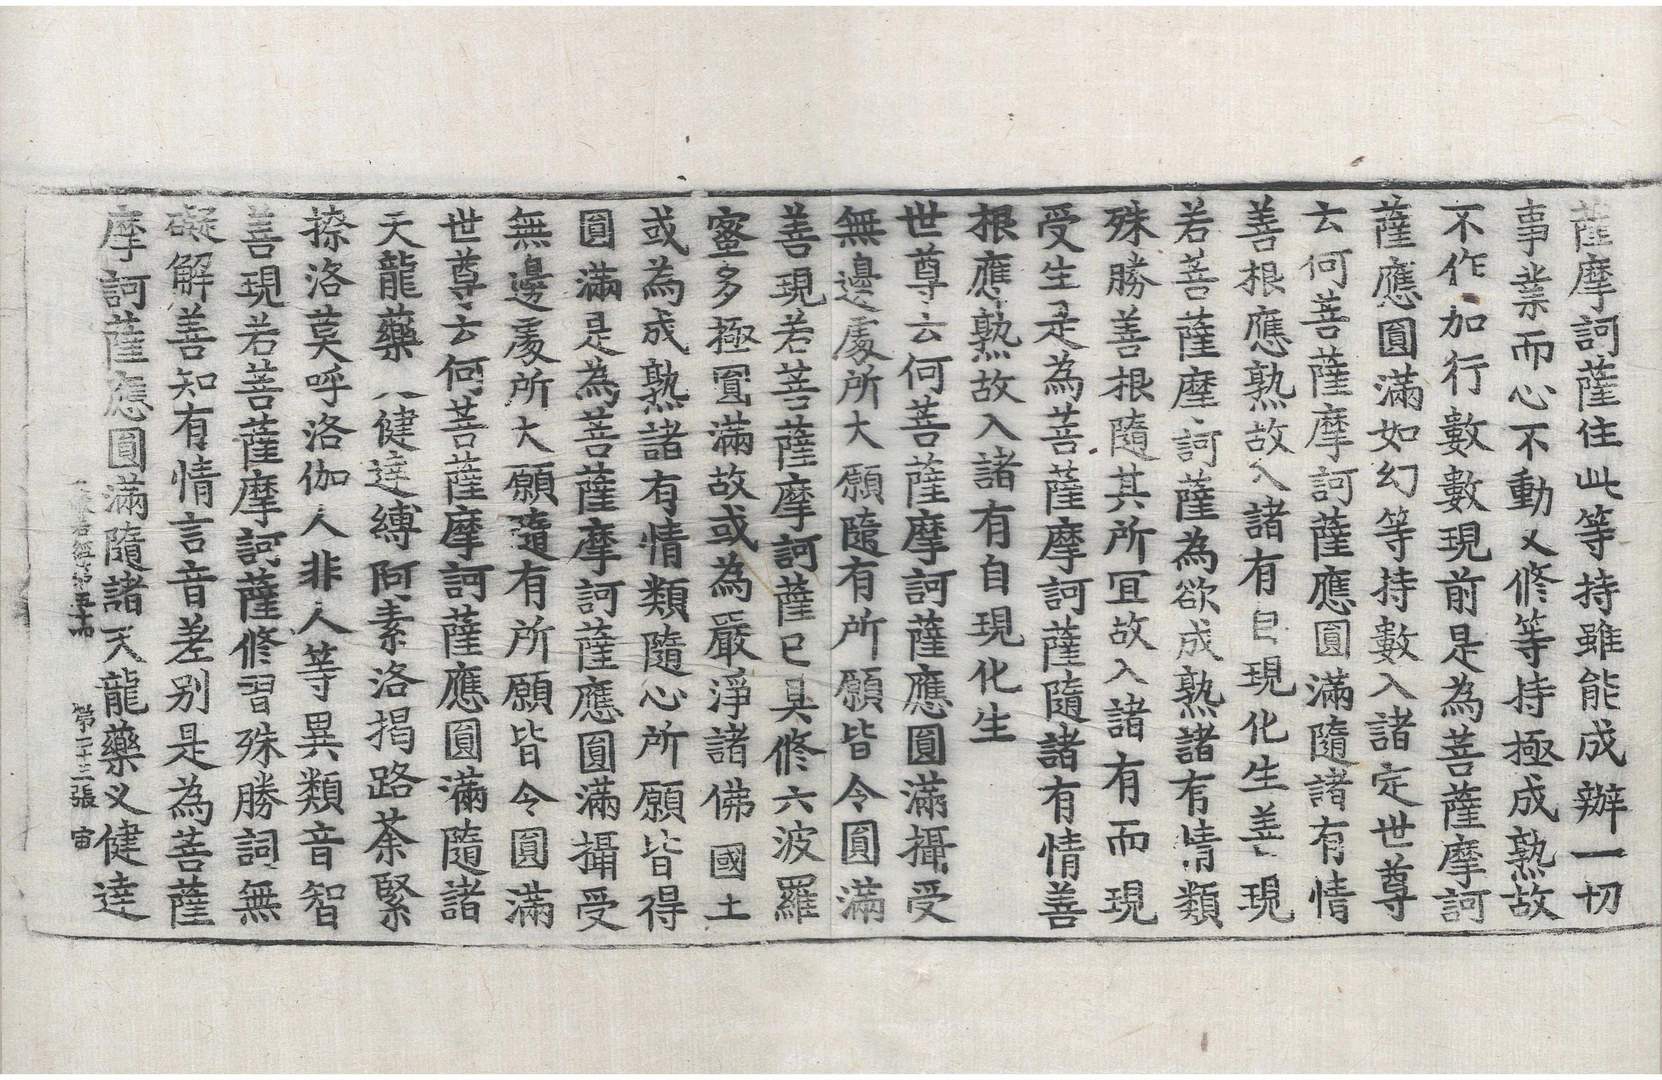 薩摩訶薩住此等持雖能成辦一切
事業而心不動又修等持極成熟故
不作加行數數現前是為菩薩摩訶
薩應圓滿如幻等持數入諸定世尊
云何菩薩摩訶薩應圓滿隨諸有情
善根應熟故入諸有自現化生善現
若菩薩摩訶薩為欲成熟諸有情類
殊勝善根隨其所冝故入諸有而現
受生是為菩薩摩訶薩隨諸有情善
根應熟故入諸有自現化生
世尊云何菩薩摩訶薩應圓滿攝受
無邊處所大願隨有所願皆令圓滿
善現若菩薩摩訶薩已具修六波羅
蜜多極圓滿故或為嚴淨諸佛國土
或為成熟諸有情類隨心所願皆得
圓滿是為菩薩摩訶薩應圓滿攝受
無邊處所大願隨有所願皆令圓滿
世尊云何菩薩摩訶薩應圓滿隨諸
天龍藥义健達縛阿素洛揭路荼緊
捺洛莫呼洛伽人非人等異類音智
善現若菩薩摩訶薩修習殊勝詞無
礙解善知有情言音差別是為菩薩
摩訶薩應圓滿隨諸天龍藥义健達
若經第五十四 第二十三張 宙